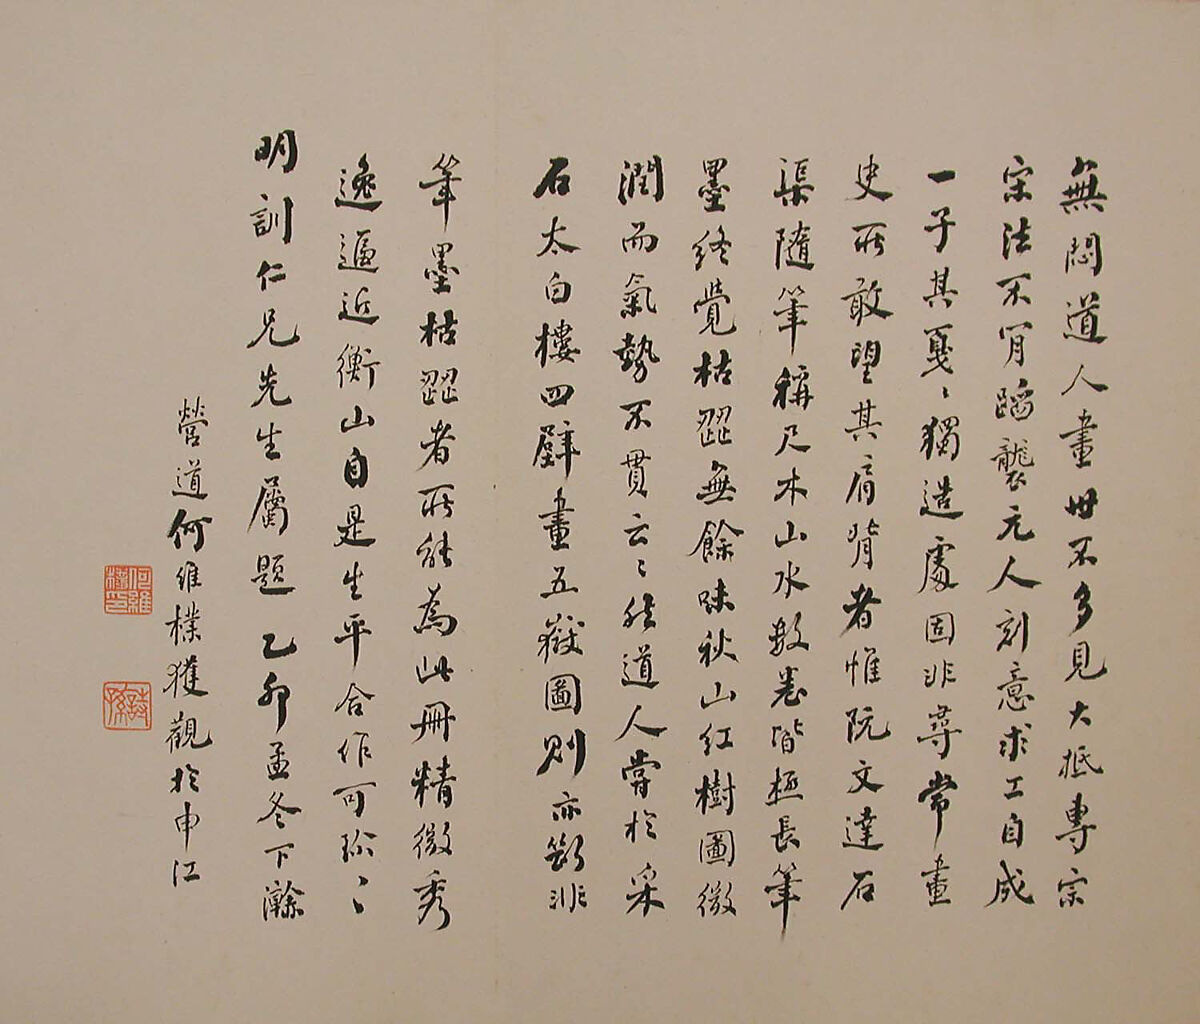 無悶道人畫世不多見大抵專宗
宋法不肯蹈襲元人刻意求工自成
一子其戛〻獨造處固非尋常畫
史所敢望其肩背者惟阮文達石
渠隨筆稱尺木山水數卷皆極長筆
墨終覺枯澀無餘味秋山紅樹圖微
潤而氣勢不貫云〻然道人嘗於采
石太白樓四壁畫五嶽圖則亦斷非
筆墨枯澀者所能為此冊精微秀
逸逼近衡山自是生平合作可珍〻
明訓仁兄先生屬題 乙卯孟冬下澣
營道何維樸獲觀於申江
何維樸印
詩孫